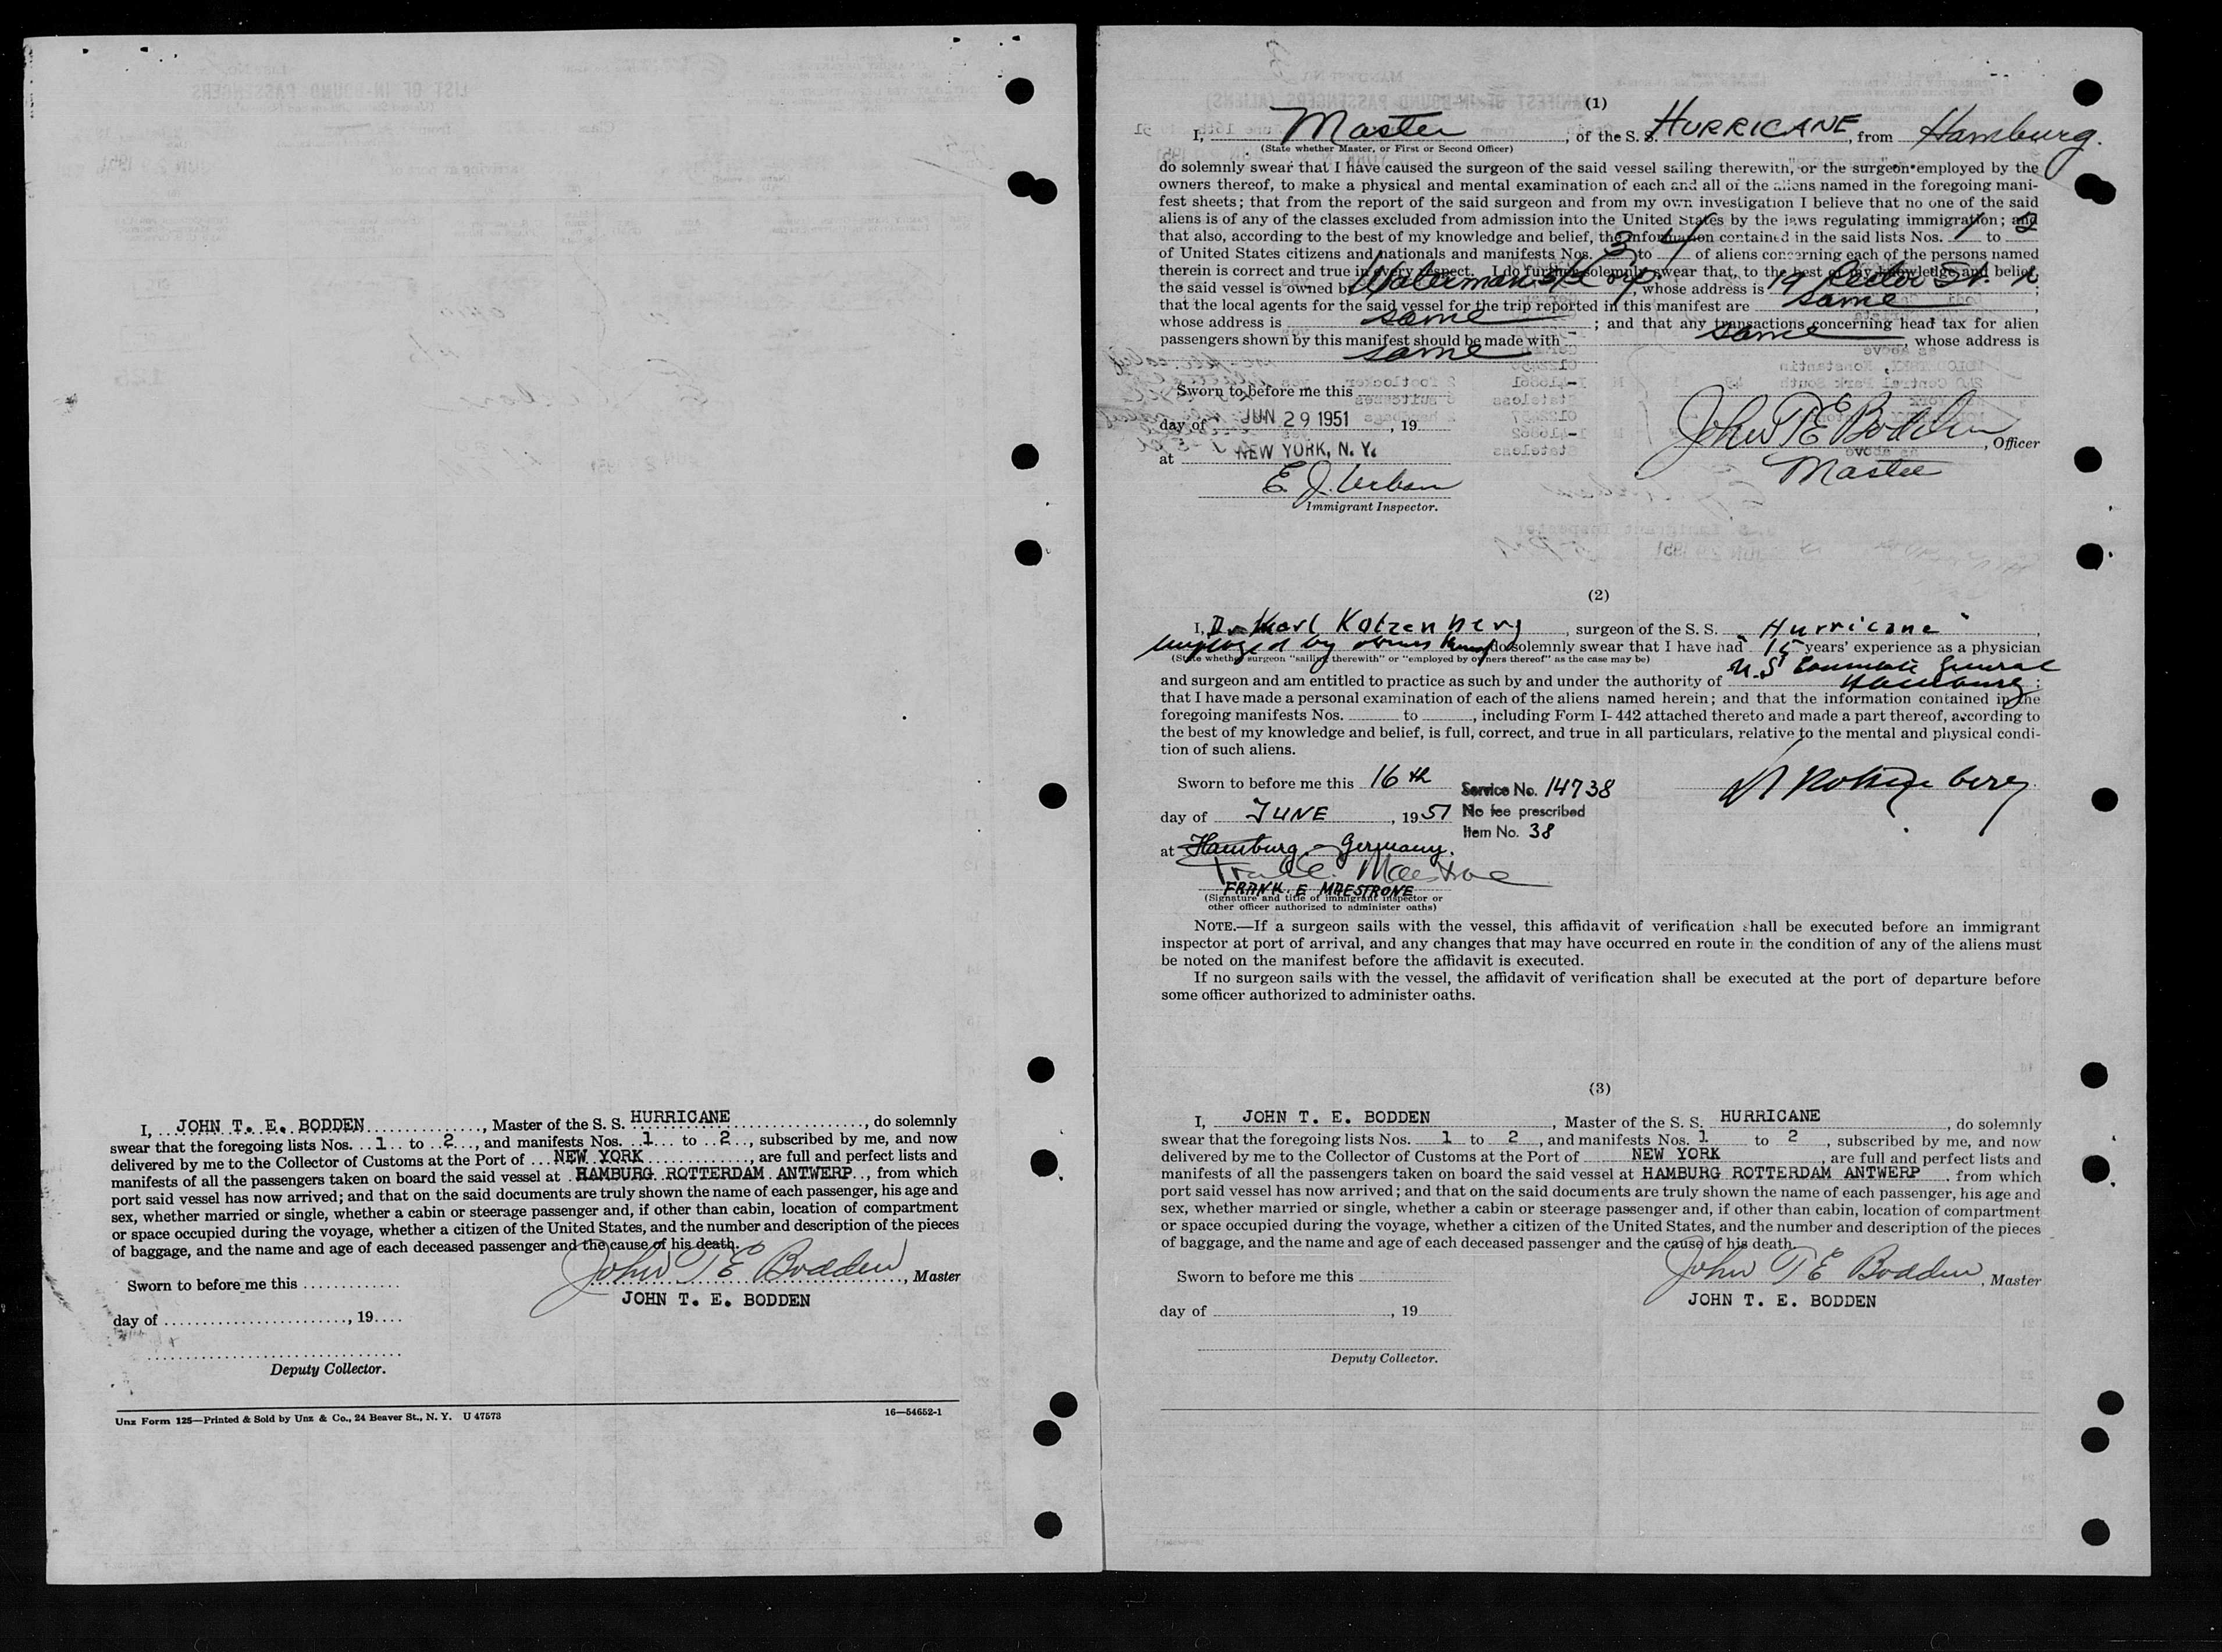 I, JOHN T. E. BODDEN, Master of the S. S. HURRICANE, do solemnly
swear that the foregoing lists Nos. 1 to 2, and manifests Nos. 1 to 2, subscribed by me, and now
delivered by me to the Collector of Customs at the Port of NEW YORK, are full and perfect lists and
manifests of all the passengers taken on board the said vessel at HAMBURG ROTTERDAM ANTWERP, from which
port said vessel has now arrived; and that on the said documents are truly shown the name of each passenger, his age and
sex, whether married or single, whether a cabin or steerage passenger and, if other than cabin, location of compartment
or space occupied during the voyage, whether a citizen of the United States, and the number and description of the pieces
of baggage, and the name and age of each deceased passenger and the cause of his death.
Sworn to before me this
John T E Bodden, Master
JOHN T. E. BODDEN
day of , 19
Deputy Collector.
Unz Form 125—Printed & Sold by Unz & Co., 24 Beaver St., N. Y. U 47573
16—54652-1
(1)
I, Master, of the S. S. HURRICANE, from Hamburg.
(State whether Master, or First or Second Officer)
do solemnly swear that I have caused the surgeon of the said vessel sailing therewith, or the surgeon employed by the
owners thereof, to make a physical and mental examination of each and all of the aliens named in the foregoing mani-
fest sheets; that from the report of the said surgeon and from my own investigation I believe that no one of the said
aliens is of any of the classes excluded from admission into the United States by the laws regulating immigration; and
that also, according to the best of my knowledge and belief, the information contained in the said lists Nos. 1 to 2
of United States citizens and nationals and manifests Nos. 3 to 4 of aliens concerning each of the persons named
therein is correct and true in every respect. I do further solemnly swear that, to the best of my knowledge and belief,
the said vessel is owned by Waterman SS Corp, whose address is 19 Rector St.
that the local agents for the said vessel for the trip reported in this manifest are same,
whose address is same; and that any transactions concerning head tax for alien
passengers shown by this manifest should be made with same, whose address is
same
Sworn to before me this
day of JUN 29 1951, 19
John T E Bodden, Officer
at NEW YORK, N. Y.
Master
E. J. Urban
Immigrant Inspector.
(2)
I, Dr Karl Kotzenberg, surgeon of the S. S. "Hurricane",
employed by owners thereof do solemnly swear that I have had 15 years' experience as a physician
(State whether surgeon "sailing therewith" or "employed by owners thereof" as the case may be)
and surgeon and am entitled to practice as such by and under the authority of U.S Consulate General
Hamburg;
that I have made a personal examination of each of the aliens named herein; and that the information contained in the
foregoing manifests Nos. to , including Form I-442 attached thereto and made a part thereof, according to
the best of my knowledge and belief, is full, correct, and true in all particulars, relative to the mental and physical condi-
tion of such aliens.
Sworn to before me this 16th
Service No. 14738
day of JUNE, 1951
No fee prescribed
Item No. 38
at Hamburg - Germany.
Frank E. Maestrone
FRANK. E MAESTRONE
(Signature and title of immigrant inspector or
other officer authorized to administer oaths)
NOTE.—If a surgeon sails with the vessel, this affidavit of verification shall be executed before an immigrant
inspector at port of arrival, and any changes that may have occurred en route in the condition of any of the aliens must
be noted on the manifest before the affidavit is executed.
If no surgeon sails with the vessel, the affidavit of verification shall be executed at the port of departure before
some officer authorized to administer oaths.
(3)
I, JOHN T. E. BODDEN, Master of the S. S. HURRICANE, do solemnly
swear that the foregoing lists Nos. 1 to 2, and manifests Nos. 1 to 2, subscribed by me, and now
delivered by me to the Collector of Customs at the Port of NEW YORK, are full and perfect lists and
manifests of all the passengers taken on board the said vessel at HAMBURG ROTTERDAM ANTWERP from which
port said vessel has now arrived; and that on the said documents are truly shown the name of each passenger, his age and
sex, whether married or single, whether a cabin or steerage passenger and, if other than cabin, location of compartment
or space occupied during the voyage, whether a citizen of the United States, and the number and description of the pieces
of baggage, and the name and age of each deceased passenger and the cause of his death.
Sworn to before me this
John T E Bodden, Master
JOHN T. E. BODDEN
day of , 19
Deputy Collector.